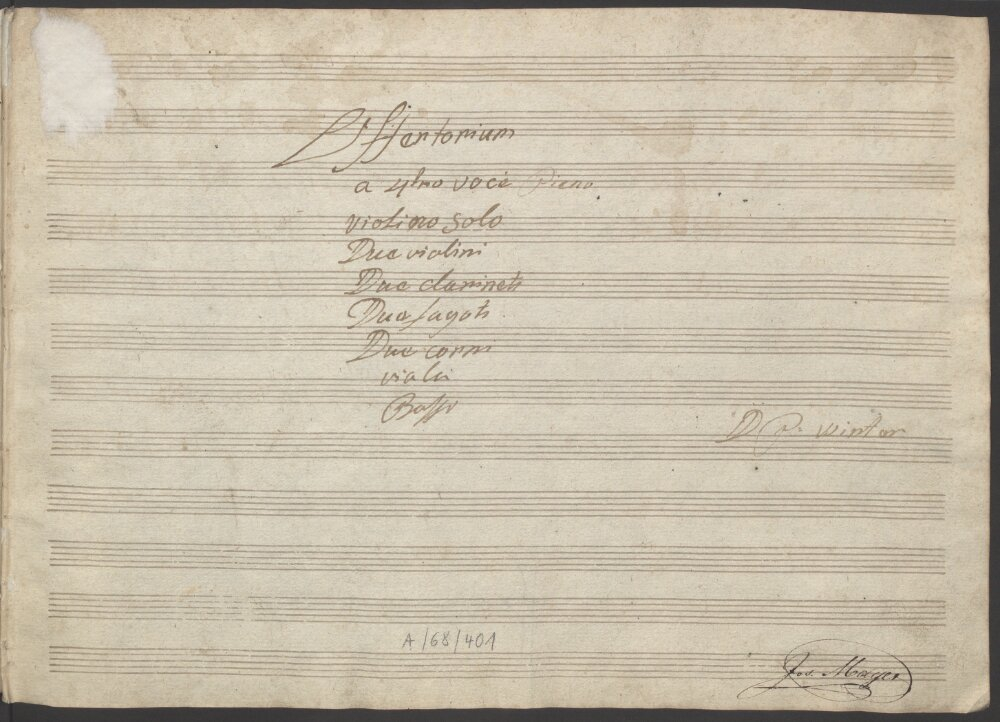 Offertorium
a 4tro voce Pieno
violino Solo
Due violini
Due clarineti
Due fagoti
Due corni
viola
Basso
D P: winter
A/68/401
Jos. Mayer